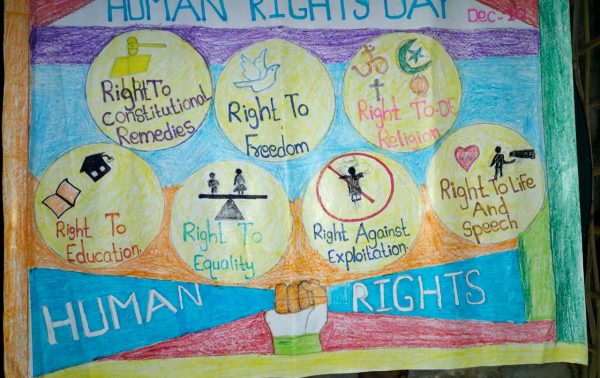 HUMAN RIGHTS DAY
Dec-10
Right To
Constitutional
Remedies.
Right To
Freedom
Right To-DE
Religion
Right To
Education.
Right To
Equality
Right Against
Exploitation.
Right To Life
And
Speech
HUMAN RIGHTS